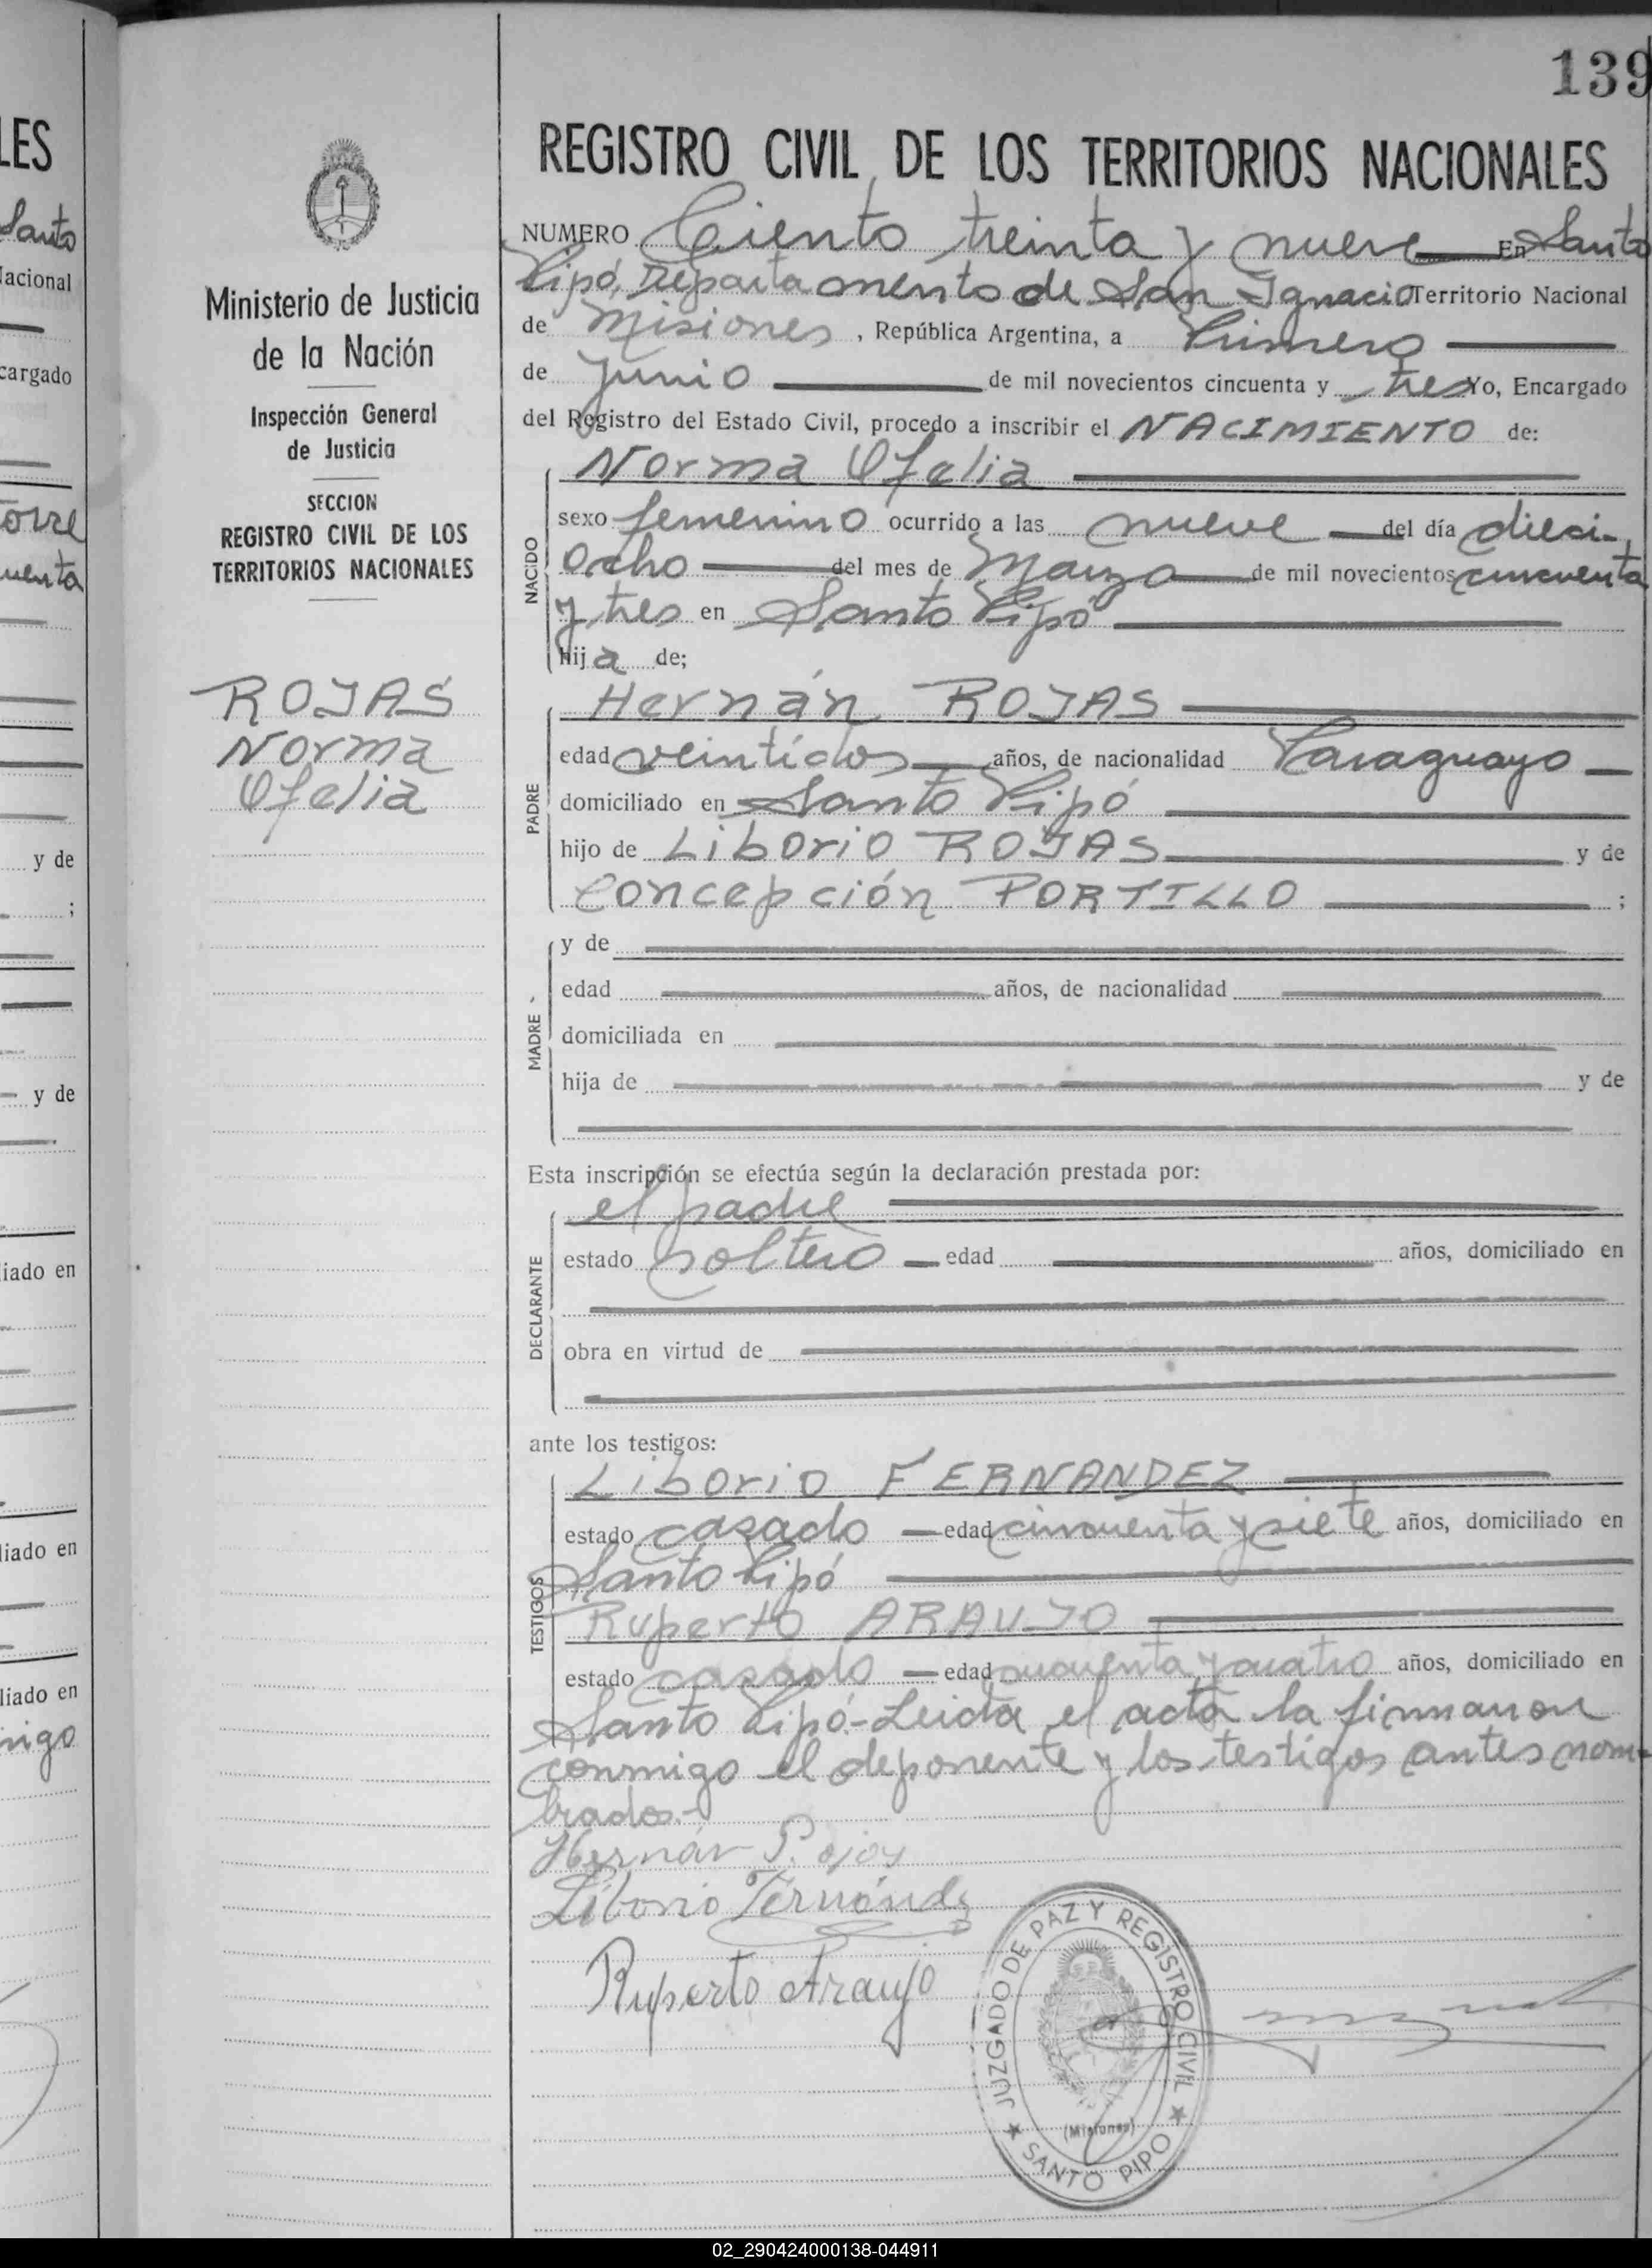 139
LES
Santo
Nacional
cargado
orre
uenta
y de
;
y de
iado en
liado en
liado en
migo
Ministerio de Justicia
de la Nación
Inspección General
de Justicia
SECCION
REGISTRO CIVIL DE LOS
TERRITORIOS NACIONALES
ROJAS
Norma
Ofelia
REGISTRO CIVIL DE LOS TERRITORIOS NACIONALES
NUMERO Ciento treinta y nueve En Santo
Pipó, Departamento de San Ignacio Territorio Nacional
de Misiones, República Argentina, a Primero
de Junio de mil novecientos cincuenta y tres Yo, Encargado
del Registro del Estado Civil, procedo a inscribir el NACIMIENTO de:
NACIDO
Norma Ofelia
sexo femenino ocurrido a las nueve del día dieci-
ocho del mes de Marzo de mil novecientos cincuenta
y tres en Santo Pipó
hija de;
PADRE
Hernán ROJAS
edad veintidos años, de nacionalidad Paraguayo
domiciliado en Santo Pipó
hijo de Liborio ROJAS y de
Concepción PORTILLO ;
MADRE
y de
edad años, de nacionalidad
domiciliada en
hija de y de
Esta inscripción se efectúa según la declaración prestada por:
DECLARANTE
el padre
estado soltero edad años, domiciliado en
obra en virtud de
ante los testigos:
TESTIGOS
Liborio FERNANDEZ
estado casado edad cincuenta y siete años, domiciliado en
Santo Pipó
Ruperto ARAUJO
estado casado edad cuarenta y cuatro años, domiciliado en
Santo Pipó.-Leida el acta la firmaron
conmigo el deponente y los testigos antes nom-
brados.-
Hernán Rojas
Liborio Fernández
Ruperto Araujo
JUZGADO DE PAZ Y REGISTRO CIVIL
(Misiones)
★ SANTO PIPO ★
02_290424000138-044911